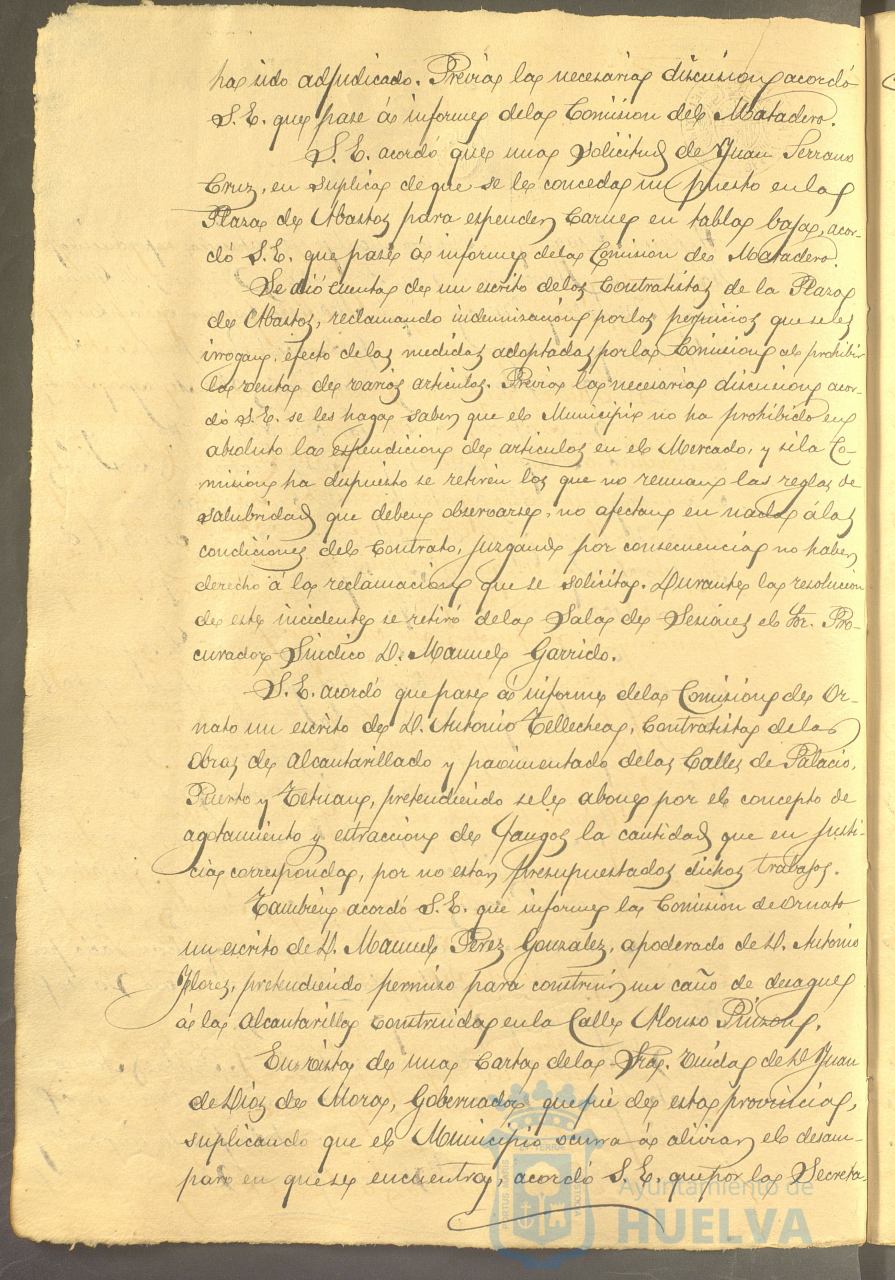 ha sido adjudicado. Previa la necesaria discusion acordó
S.E. que pase á informe de la Comision del Matadero.
S.E. acordó que una solicitud de Juan Serrano
Cruz, en suplica de que se le conceda un puesto en la
Plaza de Abastos para espender Carne en tabla baja, acor-
dó S.E. que pase á informe de la Comision de Matadero.
Se dió cuenta de un escrito de los Contratistas de la Plaza
de Abastos, reclamando indemnizacion por los perjuicios que se les
irrogan, efecto de las medidas adoptadas por la Comision al prohibir
la venta de varios articulos. Previa la necesaria discusion acor-
dó S.E. se les haga saber que el Municipio no ha prohibido en
absoluto la espendicion de articulos en el Mercado, y si la Co-
mision ha dispuesto se retiren los que no reunan las reglas de
salubridad que deben observarse, no afectan en nada á las
condiciones del Contrato, juzgando por consecuencia no haber
derecho á la reclamacion que se solicita. Durante la resolucion
de este incidente se retiró de la Sala de Sesiones el Sr. Pro-
curador Sindico D. Manuel Garrido.
S.E. acordó que pase á informe de la Comision de Or-
nato un escrito de D. Antonio Tellechea, Contratista de las
obras de alcantarillado y pavimentado de las Calles de Palacio,
Puerto y Tetuan, pretendiendo se le abone por el concepto de
agotamiento y estraccion de fangos la cantidad que en justi-
cia corresponda, por no estar presupuestados dichos trabajos.
Tambien acordó S.E. que informe la Comision de Ornato
un escrito de D. Manuel Perez Gonzalez, apoderado de D. Antonio
Flores, pretendiendo permiso para construir un caño de desague
á la Alcantarilla construida en la Calle Alonso Pinzon.
En vista de una Carta de la Sra. Viuda de D. Juan
de Dios de Mora, Gobernador que fué de esta provincia,
suplicando que el Municipio ocurra á aliviar el desam-
paro en que se encuentra, acordó S.E. que por la Secreta-
Ayuntamiento de
HUELVA